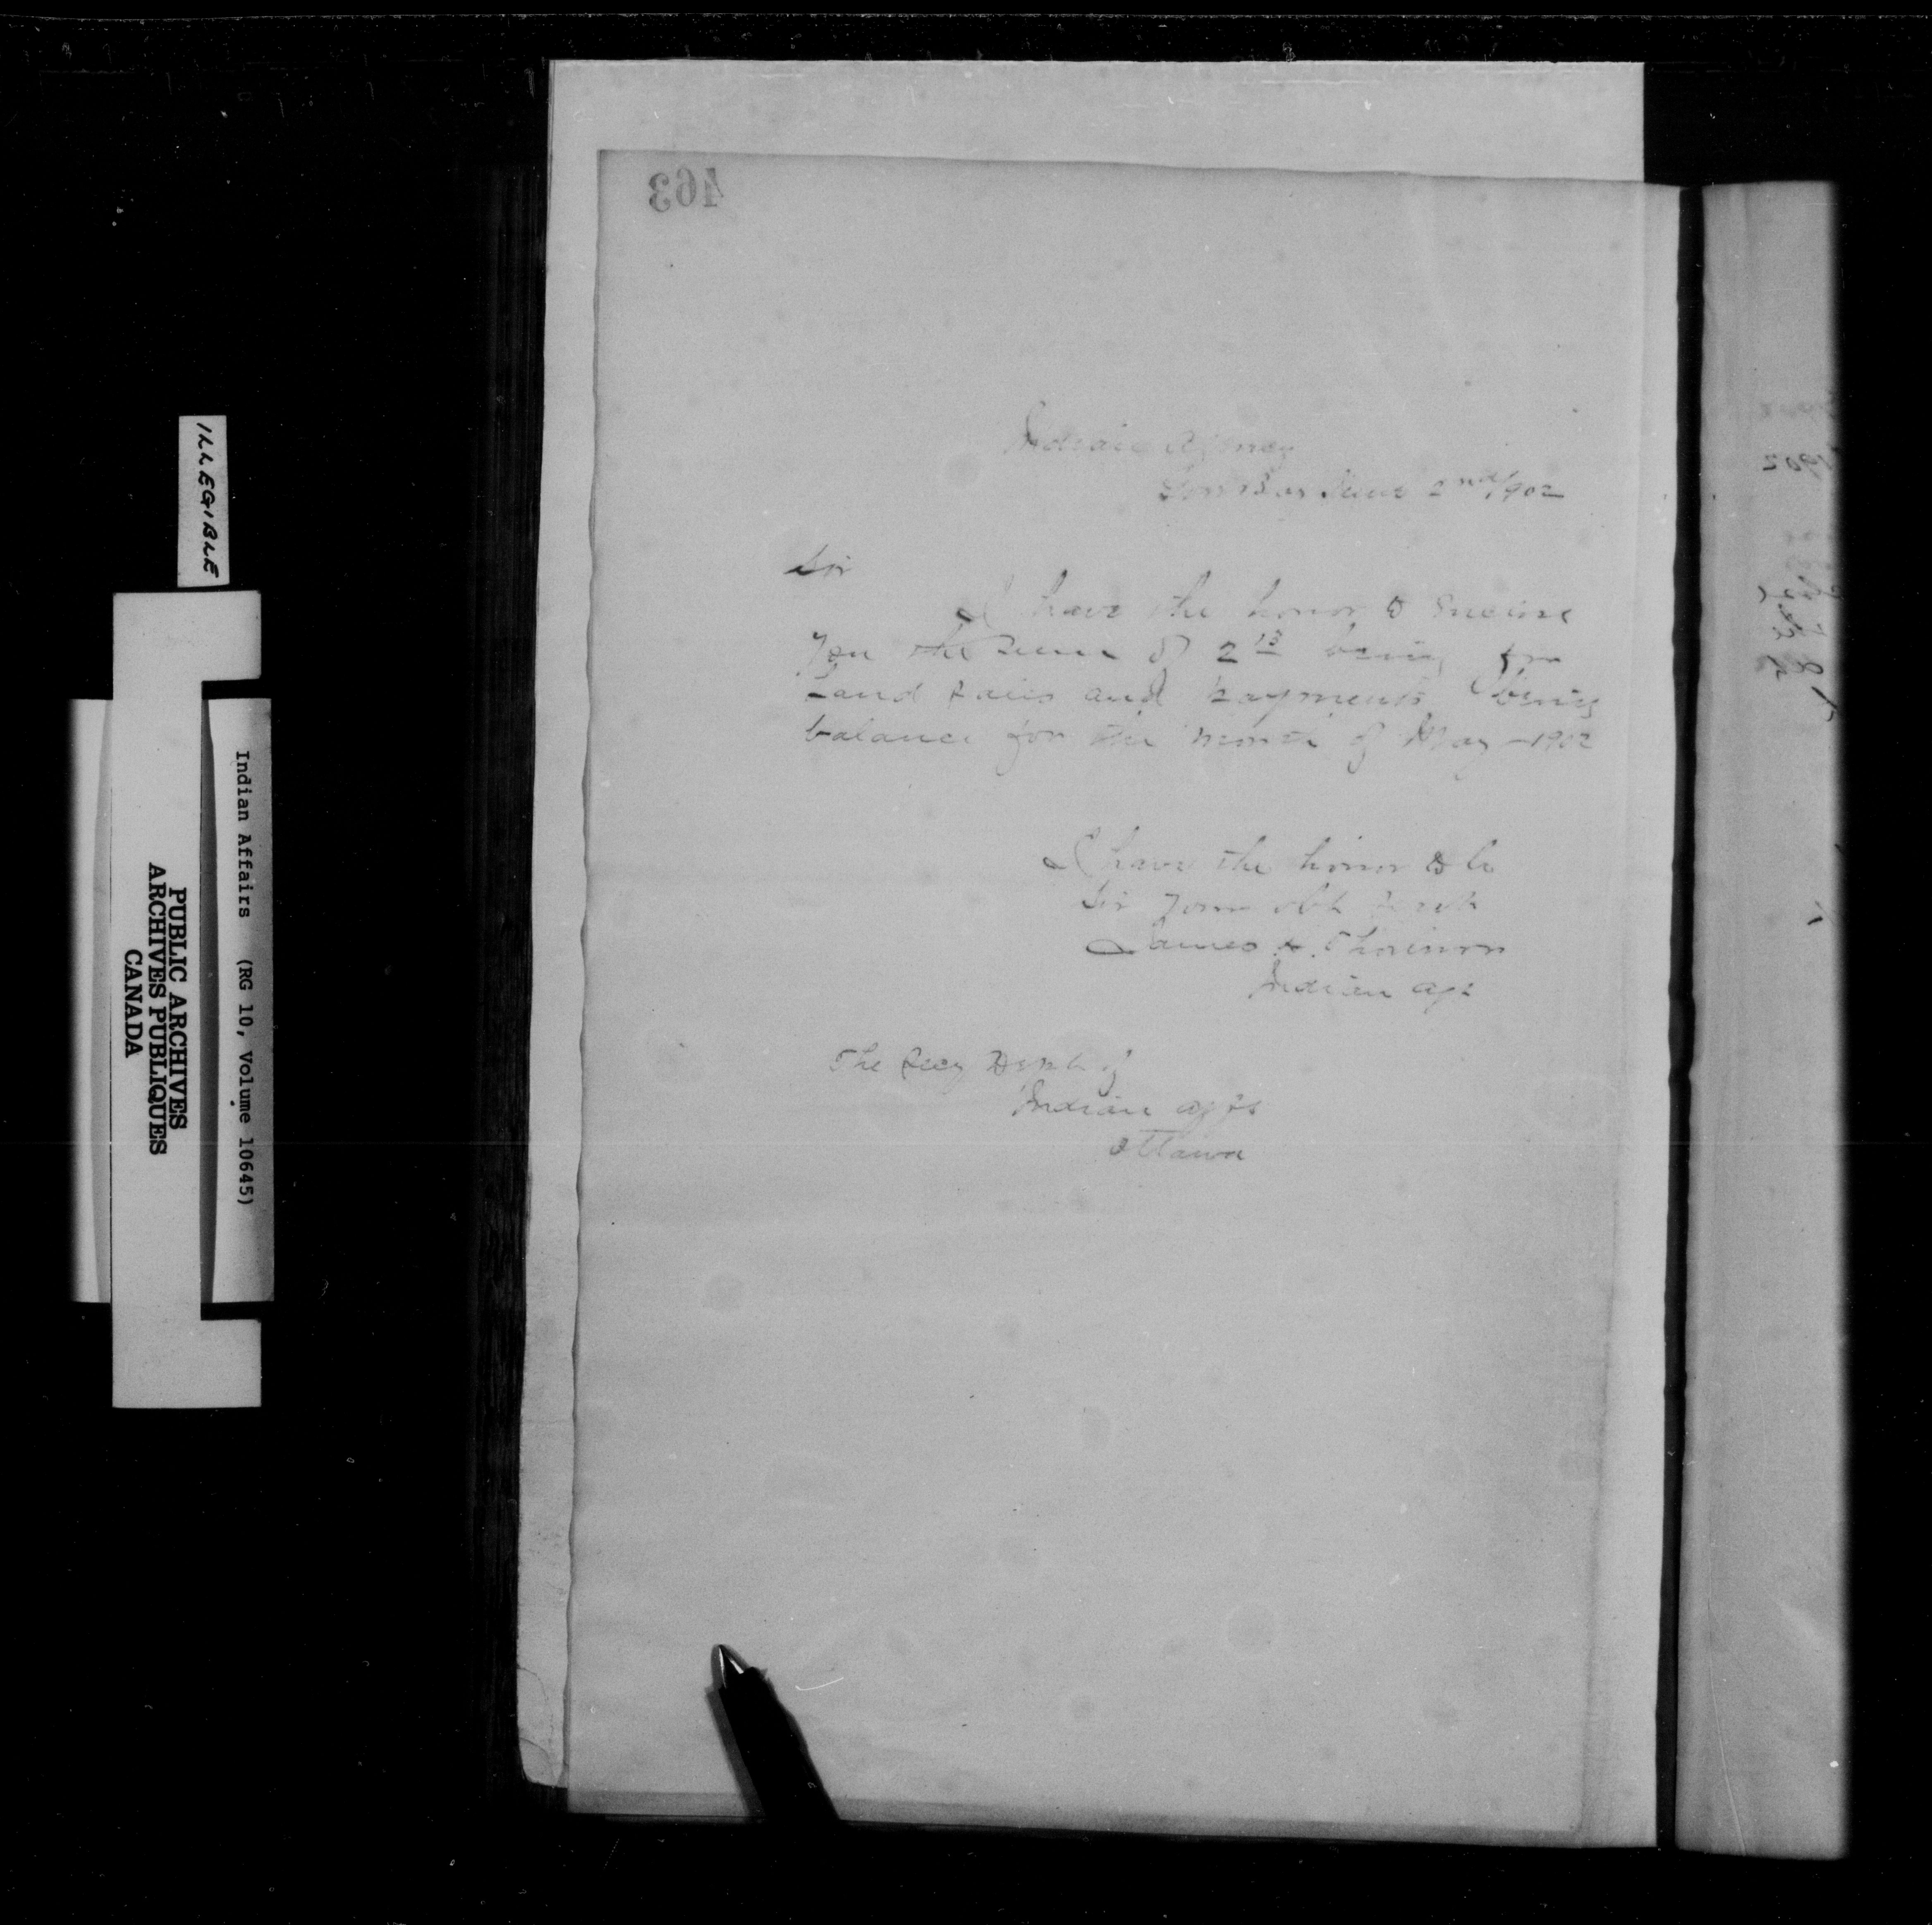 463
Indian Agency
June 2nd 1902
Sir
I have the honor to enclose
you the sum of 2 13 being for
Land Sales and payments being
balance for the month of May - 1902
I have the honor to be
Sir your obt
James
Indian Agt
The Secy Dept of
Indian Affs
Ottawa
ILLEGIBLE
Indian Affairs (RG 10, Volume 10645)
PUBLIC ARCHIVES
ARCHIVES PUBLIQUES
CANADA